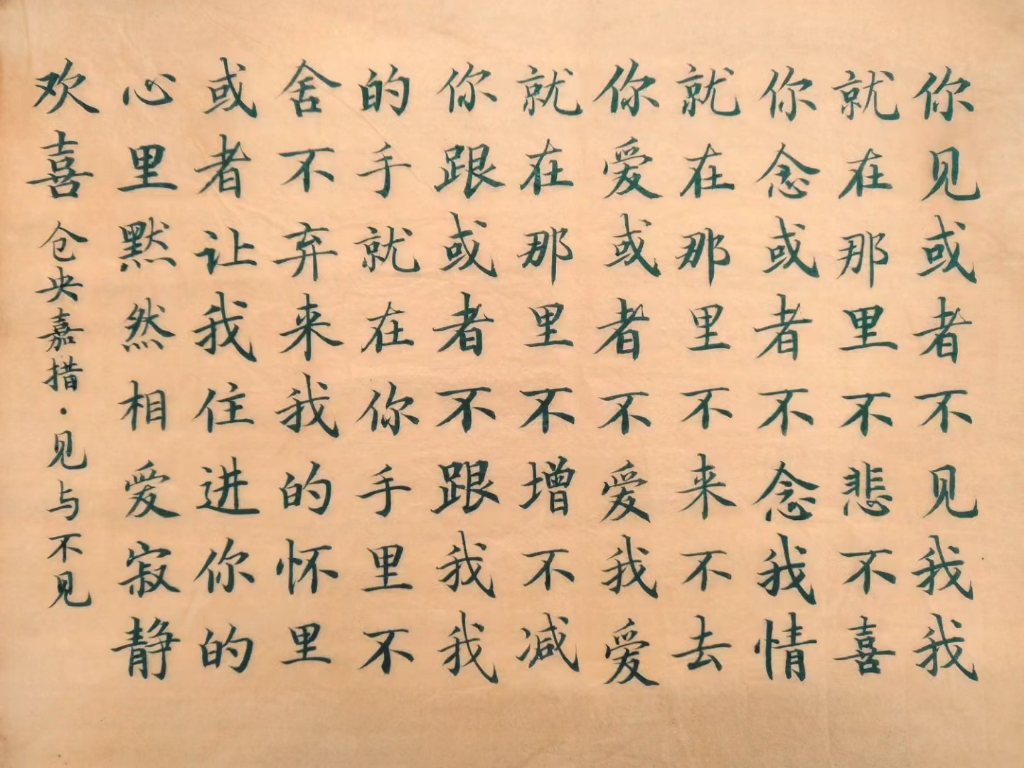 你见或者不见我我
就在那里不悲不喜
你念或者不念我情
就在那里不来不去
你爱或者不爱我爱
就在那里不增不减
你跟或者不跟我我
的手就在你手里不
舍不弃来我的怀里
或者让我住进你的
心里默然相爱寂静
欢喜 仓央嘉措·见与不见